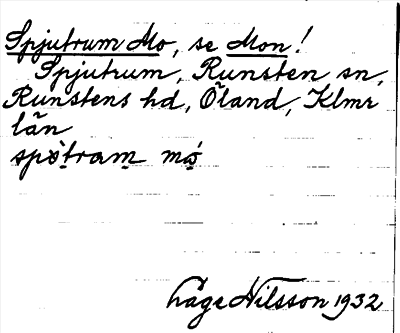 Spjutrum Mo, se Mon!
Spjutrum, Runsten sn,
Runstens hd, Öland, Klmr
län
spò̤tram̤ mó̤
håge Nilsson 1932